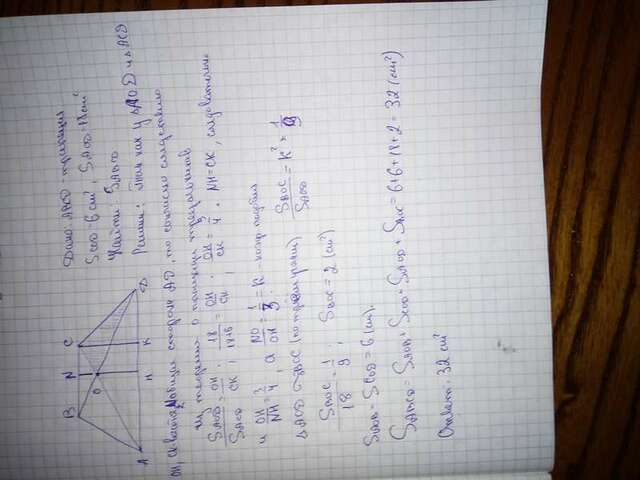 B N C
O
A H K D
Дано: ABCD - трапеция
S_COD = 6 см², S_AOD = 18 см²
Найти: S_ABCD
Решение: так как у ΔAOD и ΔACD
OH, CK высоты общая сторона AD, то согласно следствию
из теоремы о площади треугольников
S_AOD / S_ACD = OH / CK ; 18 / 18+6 = OH / CK ; OH / CK = 3 / 4 . NH = CK, следовательно
и OH / NH = 3 / 4 , а NO / OH = 1 / 3 = K - коэф. подобия
ΔAOD ∾ ΔBOC (по двум углам) S_BOC / S_AOD = K² = 1 / 9
S_BOC / 18 = 1 / 9 ; S_BOC = 2 (см²)
S_AOB = S_COD = 6 (см).
S_ABCD = S_AOB + S_COD + S_AOD + S_BOC = 6+6+18+2 = 32 (см²)
Ответ: 32 см²